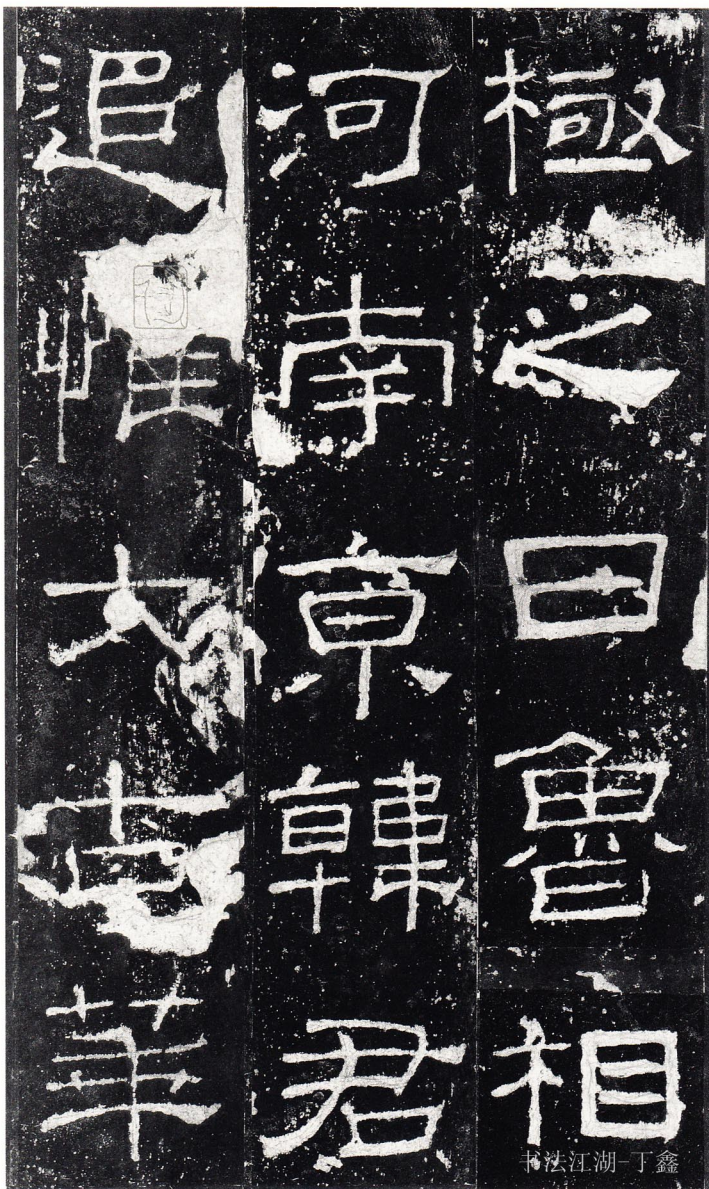 極之日魯相
河南京韓君
追惟大古華
书法江湖-丁鑫